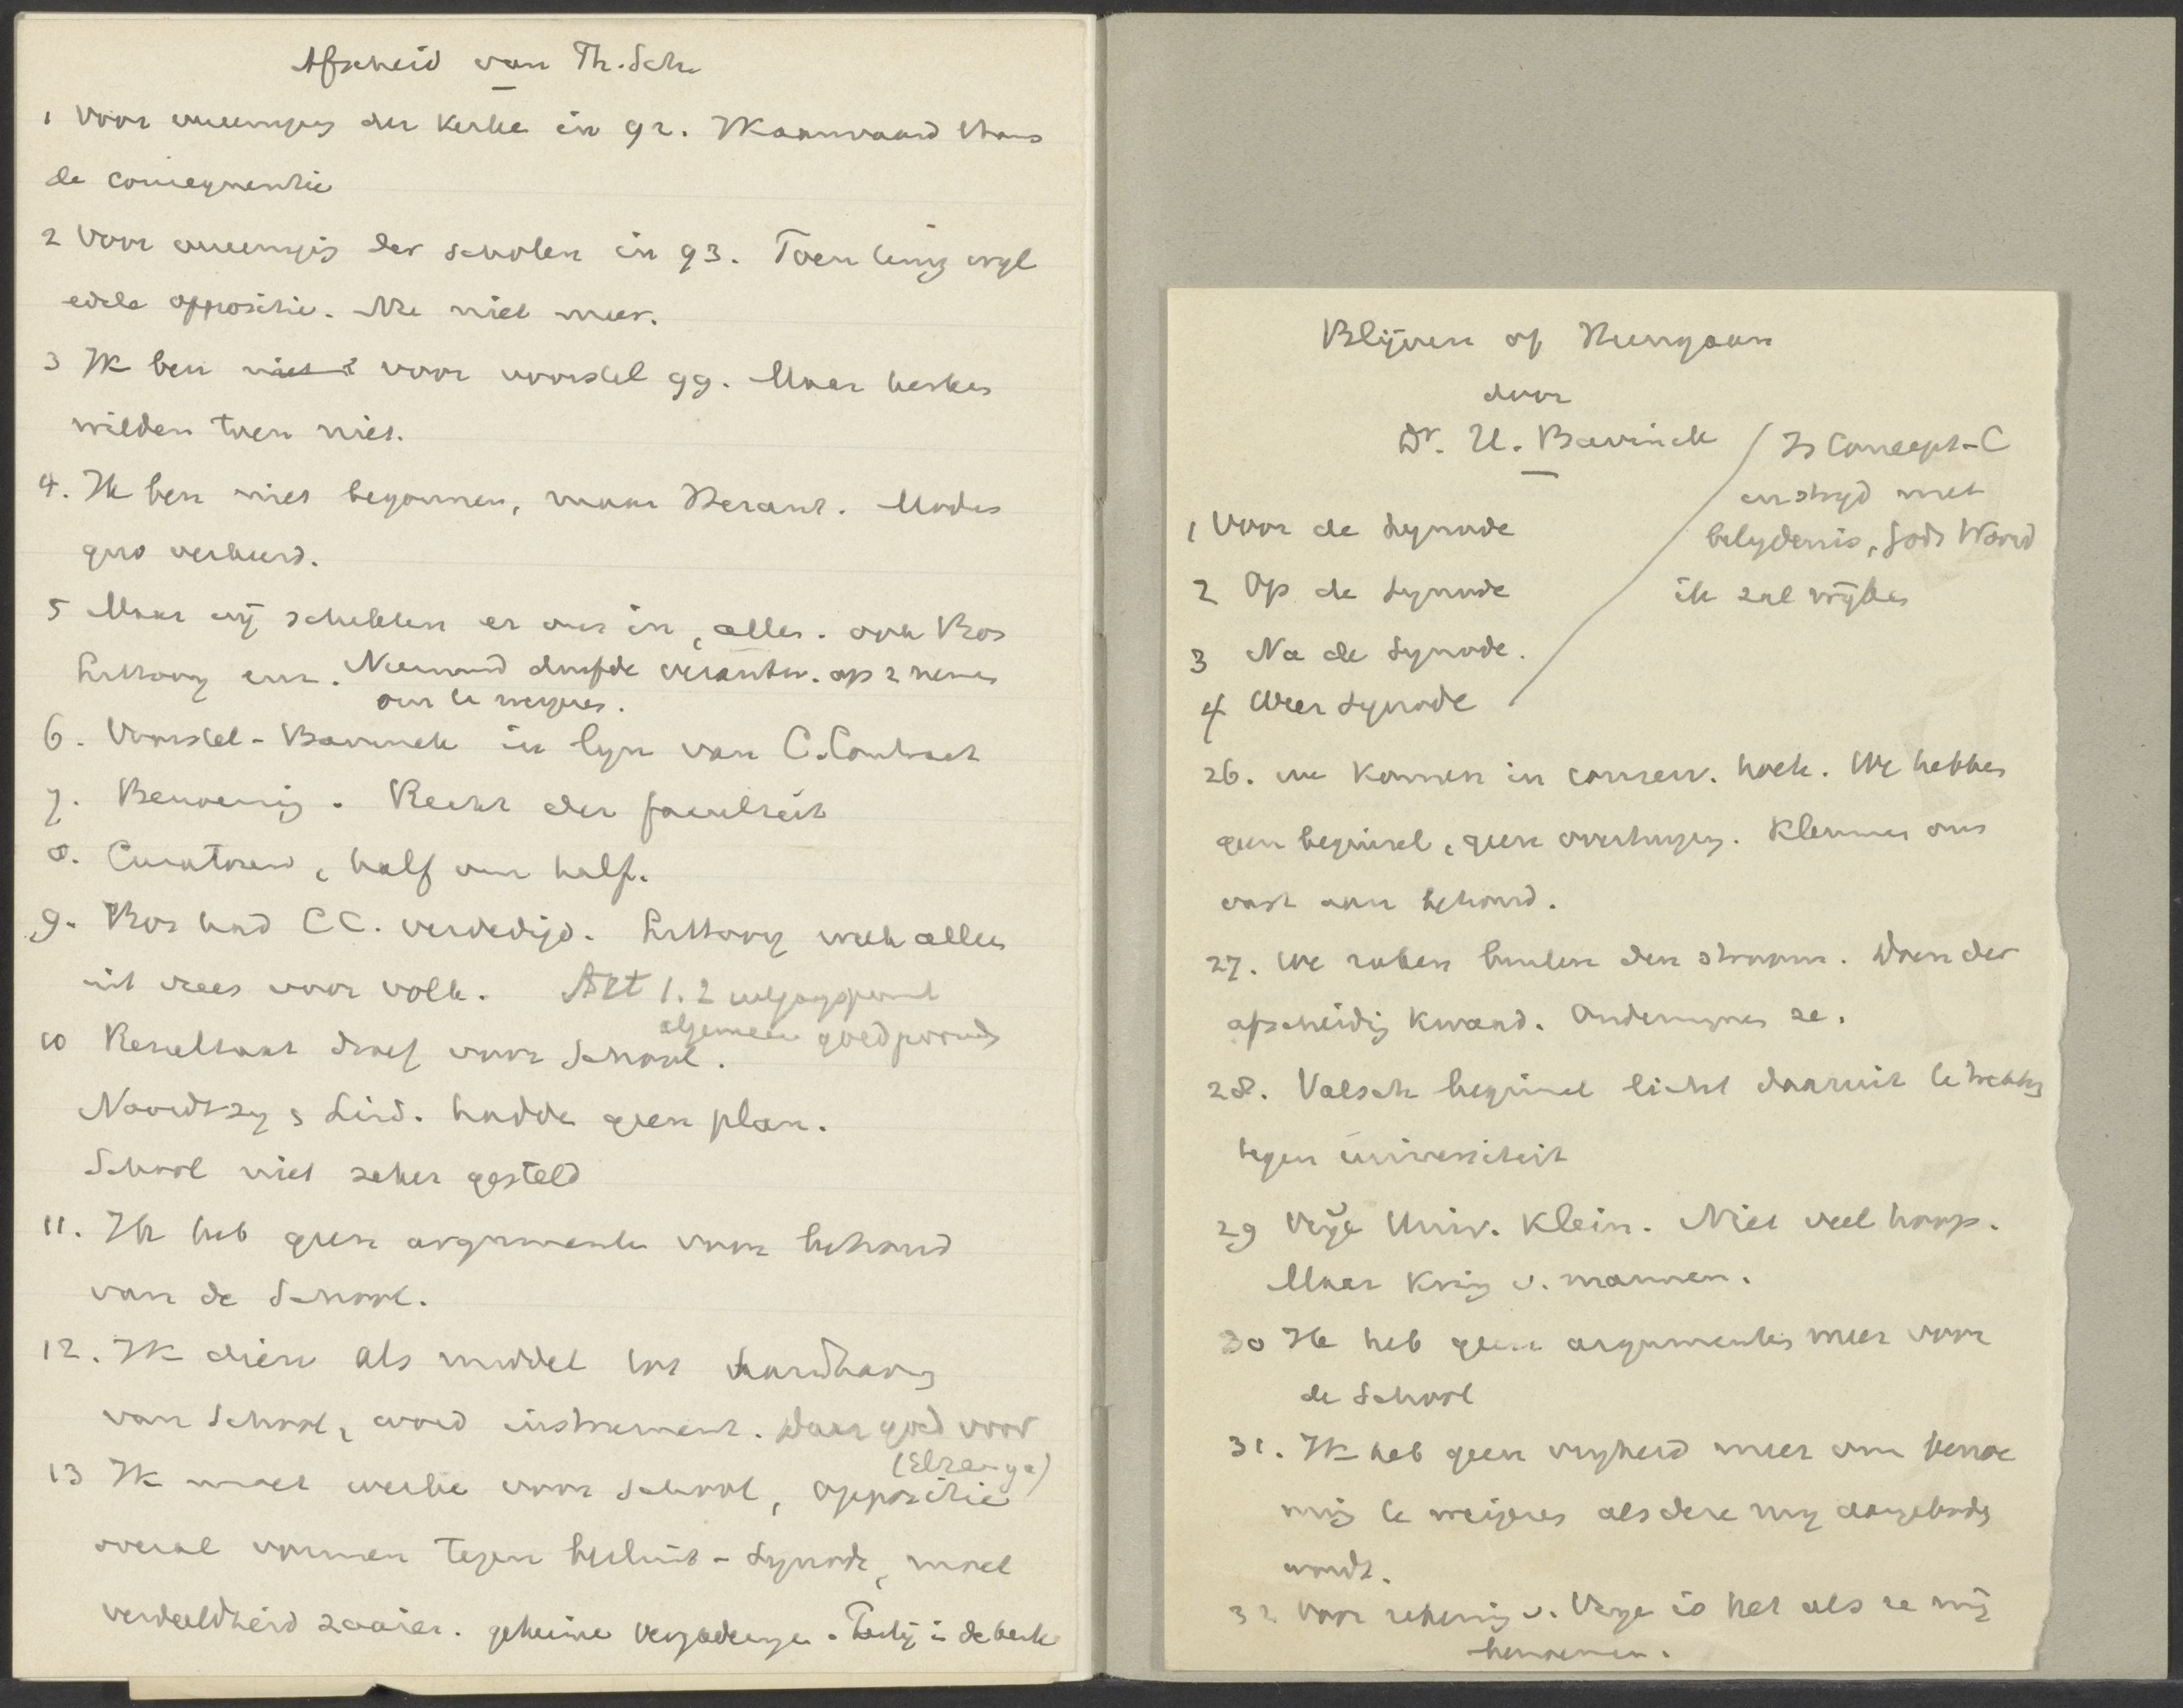 Afscheid van Th. Sch.
1 Voor vereeniging der Kerken in 92. Ik aanvaard thans
de consequentie
2 Voor vereeniging der scholen in 93. Toen terug wyl
edele oppositie. Nu niet meer.
3 Ik ben voor voorstel 99. Maar kerken
wilden toen niet.
4. Ik ben niet begonnen, maar Heraut. Modus
quo verkeerd.
5 Maar wij schikten er ons in, allen. ook Bos
Littooy enz. Niemand durfde verantw. op z nemen
om te weigeren.
6. Voorstel-Bavinck in lyn van C. Contract
7. Benoeming. Recht der faculteit
8. Curatoren, half om half.
9. Bos had CC. verdedigd. Littooy week alleen
uit vrees voor volk. Art 1.2
algemeen goedgevonden
10 Resultaat droef voor School.
Noordtzy & Lind. hadden geen plan.
School niet zeker gesteld
11. Ik heb geen argumenten voor behoud
van de School.
12. Ik dien als middel tot handhaving
van School, word instrument. Daar goed voor
(Elzenga)
13 Ik moet werken voor School, oppositie
overal vormen tegen besluit-Synode, moet
verdeeldheid zaaien. geheime vergaderingen. Partij in de kerk
Blijven of Heengaan
door
Dr. H. Bavinck
Is Concept-C
in stryd met
belydenis, Gods Woord
ik zal wijken
1 Voor de Synode
2 Op de Synode
3 Na de Synode.
4 Weer Synode
26. we komen in conserv. hoek. We hebben
geen beginsel, geen overtuiging. Klemmen ons
vast aan behoud.
27. We raken buiten den stroom. Doen der
afscheiding kwaad. Ondermynen ze.
28. Valsch beginsel licht daaruit te trekken
tegen universiteit
29 Vrije Univ. klein. Niet veel hoop.
Maar kring v. mannen.
30 Ik heb geen argumenten meer voor
de School
31. Ik heb geen vryheid meer om benoe
ming te weigeren als deze my aangeboden
wordt.
32 Voor rekening v. Vrye is het als ze mij
benoemen.